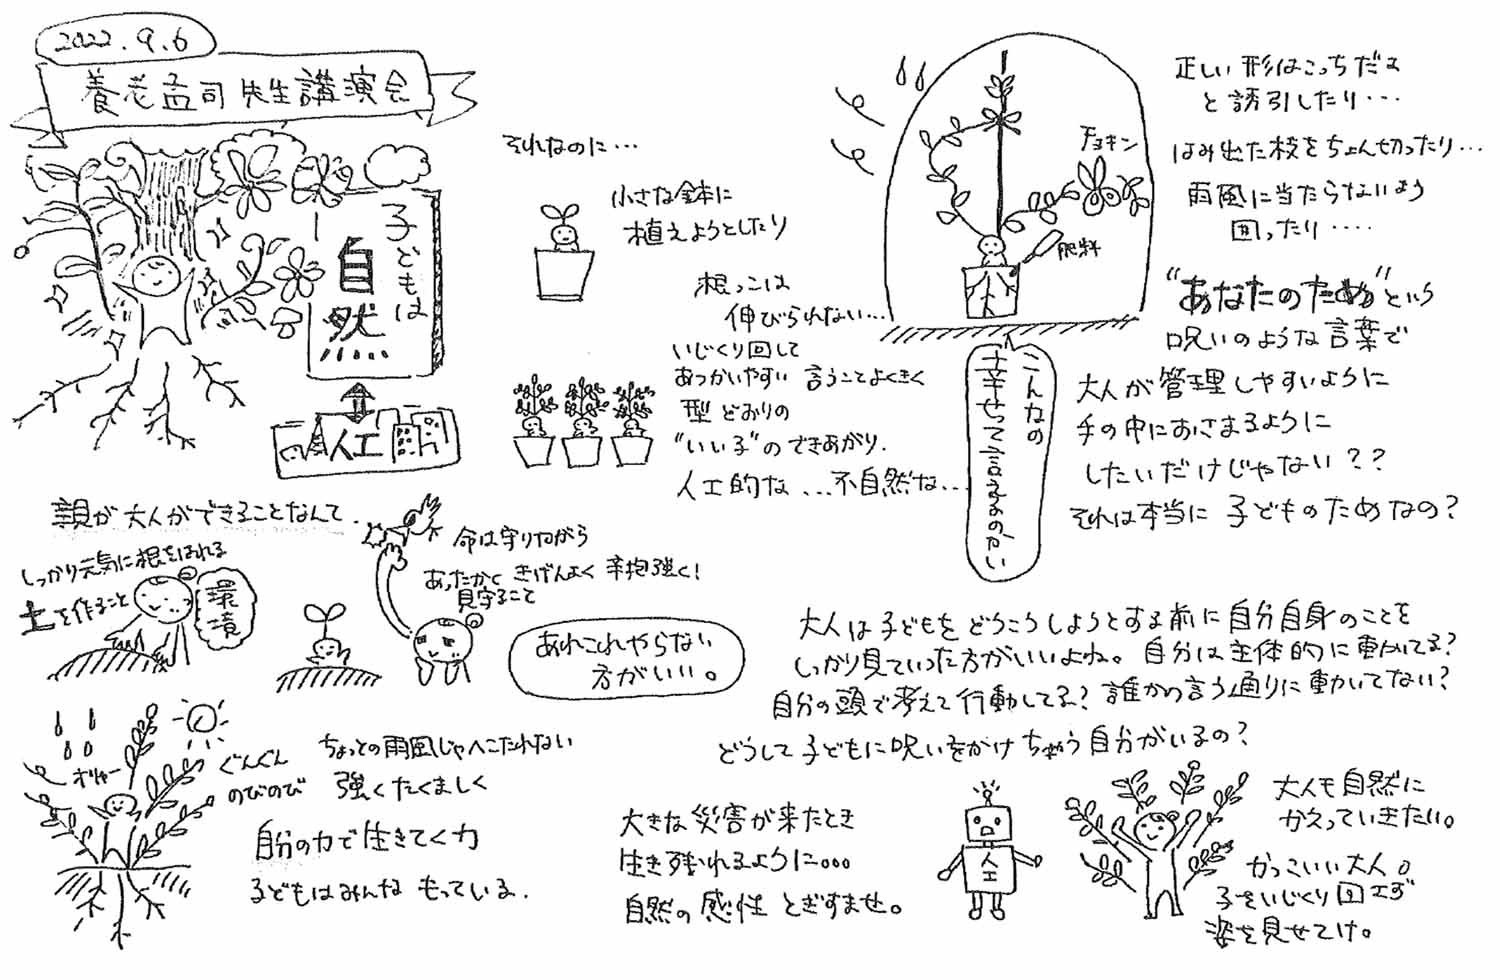 2022.9.6
養老孟司先生講演会
子どもは
自然
人工
それなのに…
小さな鉢に
植えようとしたり
根っこは
伸びられない…
いじくり回して
あつかいやすい 言うことよくきく
型どおりの
"いい子"のできあがり.
人工的な…不自然な…
チョキン
肥料
こんなの
幸せって言えるのかい
正しい形はこっちだよ
と誘引したり…
はみ出た枝をちょん切ったり…
雨風に当たらないよう
囲ったり‥‥
"あなたのため"という
呪いのような言葉で
大人が管理しやすいように
手の中におさまるように
したいだけじゃない??
それは本当に子どものためなの?
親が大人ができることなんて、
しっかり元気に根をはれる
土を作ること
環境
命は守りながら
あったかく きげんよく 辛抱強く!
見守ること
あれこれやらない
方がいい。
オリャー
ぐんぐん
のびのび
ちょっとの雨風じゃへこたれない
強くたくましく
自分の力で生きてく力
子どもはみんなもっている.
大人は子どもをどうこうしようとする前に自分自身のことを
しっかり見ていった方がいいよね。自分は主体的に動いてる?
自分の頭で考えて行動してる?誰かの言う通りに動いてない?
どうして子どもに呪いをかけちゃう自分がいるの?
大きな災害が来たとき
生き残れるように…
自然の感性とぎすませ。
人工
大人も自然に
かえっていきたい。
かっこいい大人。
子をいじくり回さず
姿を見せてけ。